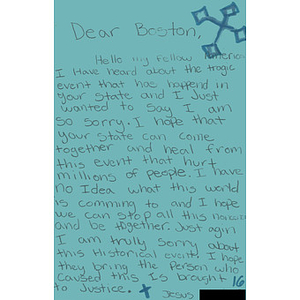 Dear Boston,
Hello my fellow American
I Have heard about the tragic
event that has happend in
your State and I Just
wanted to say I am
so sorry. I hope that
your State can come
together and heal from
this event that hurt
millions of people. I have
no Idea what this world
is comming to and I hope
we can stop all this
and be together. Just agin
I am truly sorry about
this Historical event I hope
they bring the Person who
caused this Is brought
to Justice.
Jesus
16